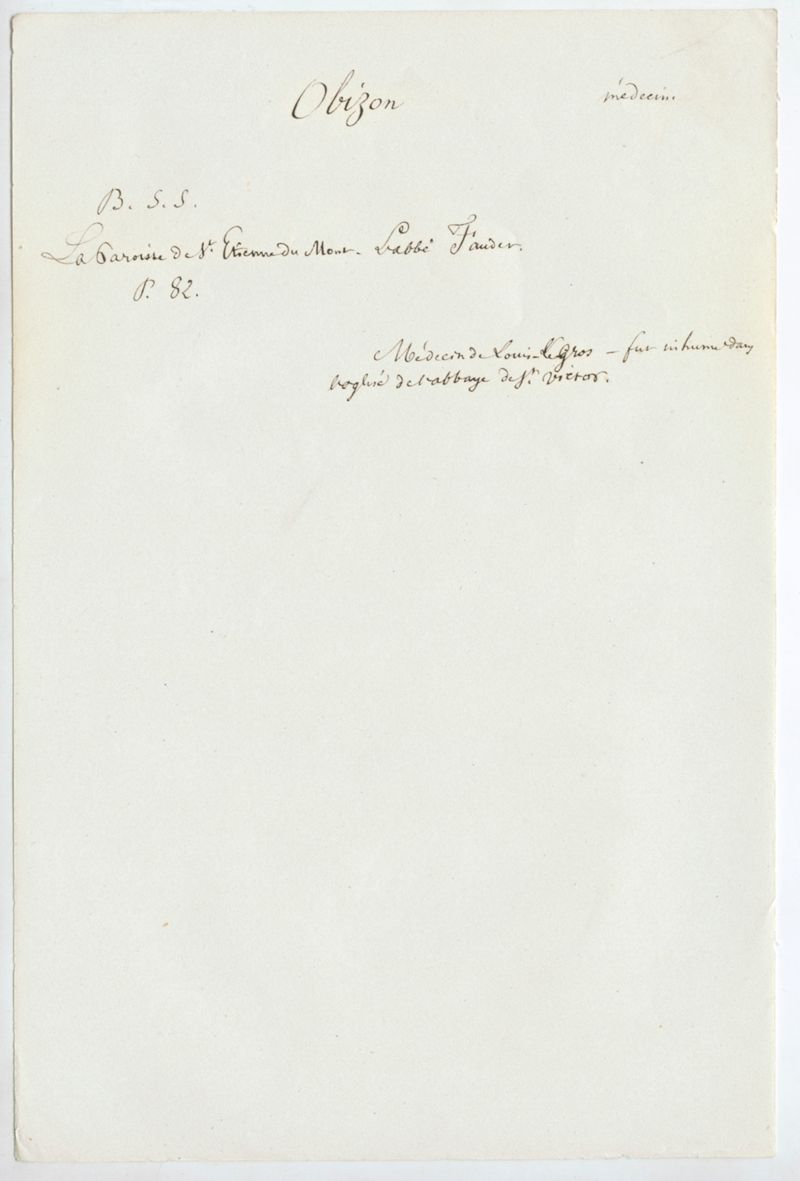 Obizon
médecin.
B. S. S.
La Paroisse de St. Etienne du Mont. L'abbé Faudet.
P. 82.
Médecin de Louis-le gros — fut inhumé dans
l'église de l'abbaye de St. Victor.